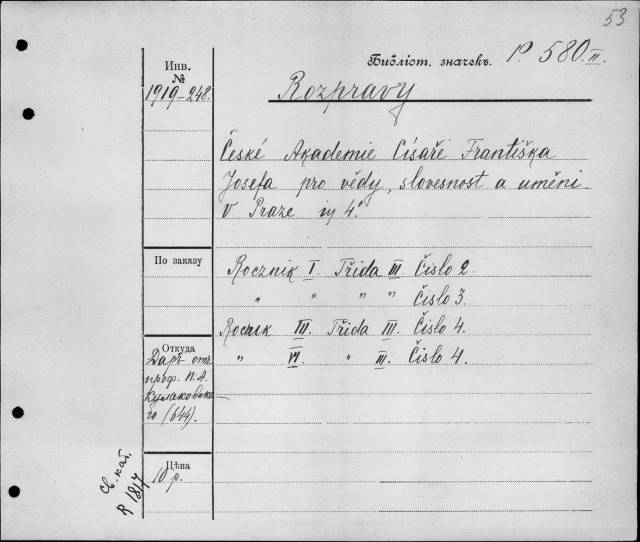 53
Инв.
№
1919-248.
Библіот. значекъ. P. 580.II.
Rozpravy
České Akademie Císaře Františka
Josefa pro vědy, slovesnost a uměni.
V Praze in 4.º
По заказу
Rocznik I Třida III Čislo 2.
" " " " Čislo 3.
Ročnik III. Třida III. Čislo 4.
" VI. " III. Čislo 4.
Откуда
Даръ отъ
проф. П.А.
Кулаковска-
го (644).
Цѣна
10 р.
Св. кат.
R 1817